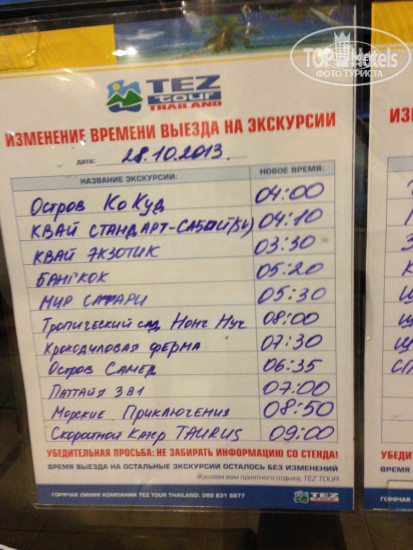 TOPHotels
ФОТО ТУРИСТА
TEZ
TOUR
THAILAND
ИЗМЕНЕНИЕ ВРЕМЕНИ ВЫЕЗДА НА ЭКСКУРСИИ
ДАТА: 28.10.2013.
НАЗВАНИЕ ЭКСКУРСИИ: НОВОЕ ВРЕМЯ:
Остров Ко Куд 04:00
КВАЙ СТАНДАРТ- 04:10
КВАЙ ЭКЗОТИК 03:30
БАНГКОК 05:20
МИР САФАРИ 05:30
Тропический сад Нонг Нуч 08:00
Крокодиловая ферма 07:30
Остров Самед 06:35
Паттайя 3в1 07:00
Морские Приключения 08:50
Скоростной Катер TAURUS 09:00
УБЕДИТЕЛЬНАЯ ПРОСЬБА: НЕ ЗАБИРАТЬ ИНФОРМАЦИЮ СО СТЕНДА!
ВРЕМЯ ВЫЕЗДА НА ОСТАЛЬНЫЕ ЭКСКУРСИИ ОСТАЛОСЬ БЕЗ ИЗМЕНЕНИЙ
Желаем вам приятного отдыха, TEZ TOUR
ГОРЯЧАЯ ЛИНИЯ КОМПАНИИ TEZ TOUR THAILAND: 088 831 6877
TEZ
TOUR
ИЗМ
УБЕДИТЕ
ВРЕМЯ ВЫ
ГОРЯЧАЯ